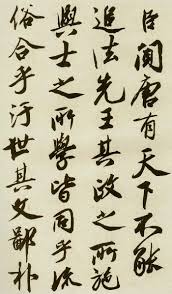 臣閱唐有天下不能
追法先王其政之所施
與士之所學皆同乎流
俗合乎汙世其文鄙朴